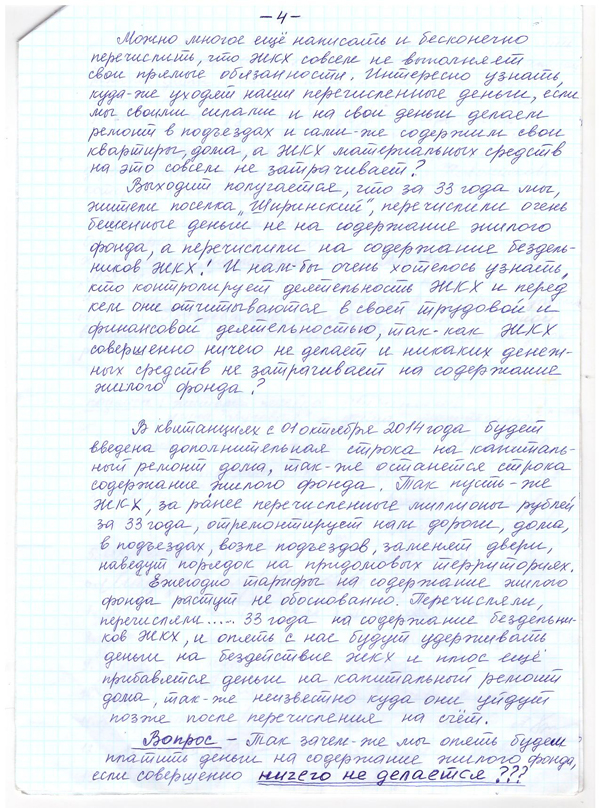 -4-
Можно многое ещё написать и бесконечно
перечислить, что ЖКХ совсем не выполняет
свои прямые обязанности. Интересно узнать,
куда-же уходят наши перечисленные деньги, если
мы своими силами и на свои деньги делаем
ремонт в подъездах и сами-же содержим свои
квартиры, дома, а ЖКХ материальных средств
на это совсем не затрачивает?
Выходит получается, что за 33 года мы,
жители поселка "Ширинский", перечислили очень
бешенные деньги не на содержание жилого
фонда, а перечислили на содержание бездель-
ников ЖКХ! И нам-бы очень хотелось узнать,
кто контролирует деятельность ЖКХ и перед
кем они отчитываются в своей трудовой и
финансовой деятельностью, так-как ЖКХ
совершенно ничего не делает и никаких денеж-
ных средств не затрагивает на содержание
жилого фонда?
В квитанциях с 01 октября 2014 года будет
введена дополнительная строка на капиталь-
ный ремонт дома, так-же останется строка
содержание жилого фонда. Так пусть-же
ЖКХ, за ранее перечисленные миллионы рублей
за 33 года, отремонтирует нам дороги, дома,
в подъездах, возле подъездов, заменят двери,
наведут порядок на придомовых территориях.
Ежегодно тарифы на содержание жилого
фонда растут не обоснованно. Перечисляли,
перечисляли..... 33 года на содержание бездельни-
ков ЖКХ, и опять с нас будут удерживать
деньги на бездействие ЖКХ и плюс ещё
прибавятся деньги на капитальный ремонт
дома, так-же неизвестно куда они уйдут
позже после перечисления на счёт.
Вопрос - Так зачем-же мы опять будем
платить деньги на содержание жилого фонда,
если совершенно ничего не делается???